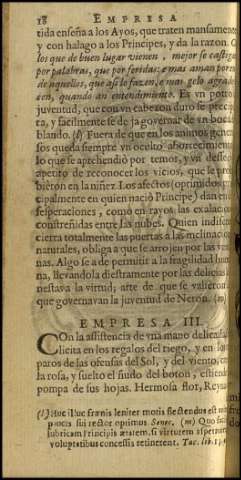 18 EMPRESA
tida enseña a los Ayos, que traten mansamente
y con halago a los Principes, y da la razon. C
los que de buen lugar vienen, mejor se castiga
por palabras, que por feridas: e mas aman por en
de aquellos, que assi lo fazen, e mas gelo agrade
cen, quando an entendimiento. Es vn potro
juventud, que con vn cabezon duro se precip
ra, y facilmente se deja governar de vn boca
blando. (l) Fuera de que en los animos genero
sos queda siempre vn oculto aborrecimiento
lo que se aprendiò por temor, y vn desseo
apetito de reconocer los vicios, que le prohi
bieron en la niñez. Los afectos oprimidos (prin
cipalmente en quien naciò Principe) dan en
sesperaciones, como en rayos las exalacio
constreñidas entre las nubes. Quien indiscr
cierra totalmente las puertas a las inclinacio
naturales, obliga a que se arrojen por las venta
nas. Algo se a de permitir a la fragilidad huma
na, llevandola diestramente por las delicias
nestas a la virtud; arte de que se valieron
que governavan la juventud de Neron. (m)
EMPRESA III.
COn la assistencia de vna mano delicada
licita en los regalos del riego, y en los
paros de las ofensas del Sol, y del viento, cre
la rosa, y suelto el ñudo del boton, estiende
pompa de sus hojas. Hermosa flor, Reyna
(l) Huc illuc frænis leniter motis flectendus est
paucis sui rector optimus. Senec. (m) Quo faci
lubricam Principis ætatem, si virtutem aspernar
voluptatibus concessis retinerent. Tac. lib. 13.